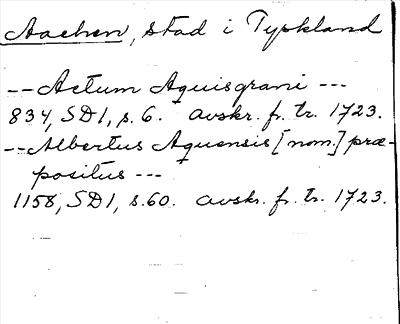 Aachen, stad i Tyskland
-- Actum Aquisgrani ---
834, SD1, s. 6. avskr. fr. tr. 1723.
-- Albertus Aquensis [nom.] præ-
positus ---
1158, SD1, s. 60. avskr. fr. tr. 1723.